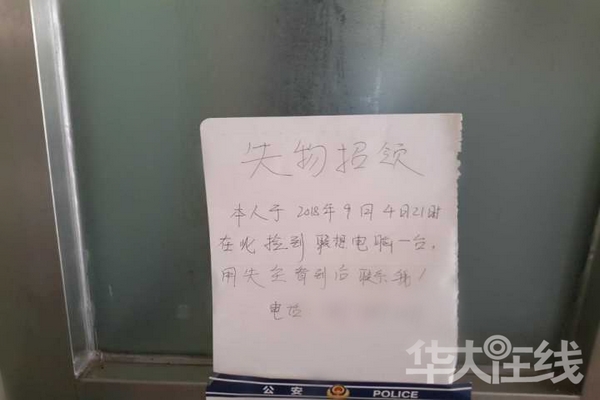 失物招领
本人于2018年9月4日21时
在此捡到联想电脑一台,
失主看到后联系我!
电话
公安 POLICE
华大在线